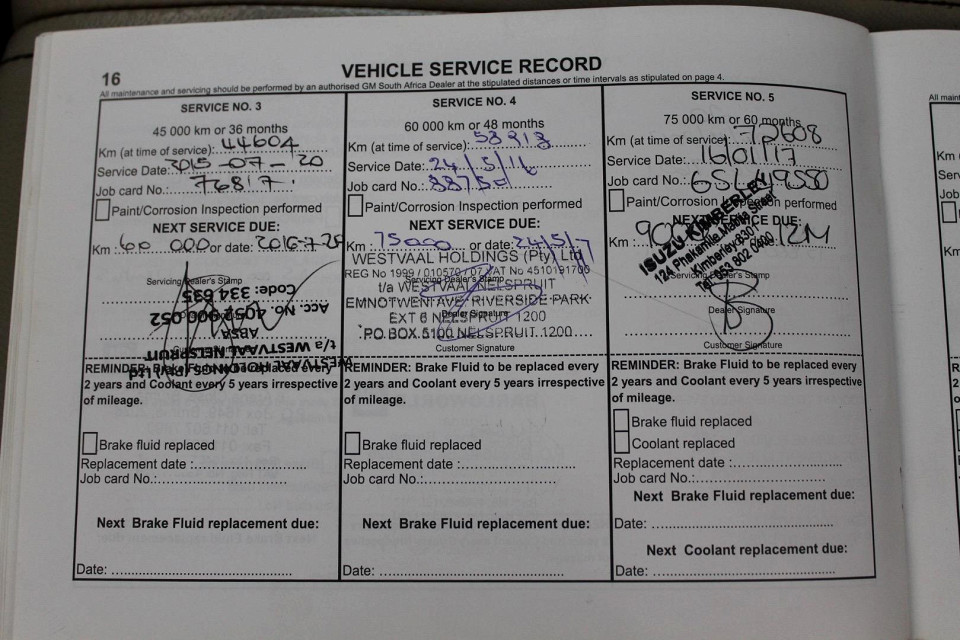 16
VEHICLE SERVICE RECORD
All maintenance and servicing should be performed by an authorised GM South Africa Dealer at the stipulated distances or time intervals as stipulated on page 4.
SERVICE NO. 3
45 000 km or 36 months
Km (at time of service): 44604
Service Date: 2015-07-20
Job card No.: 76817
Paint/Corrosion Inspection performed
NEXT SERVICE DUE:
Km: 60 000 or date: 2016-7-20
Servicing Dealer's Stamp
Code: 334 635
Acc. No. 4052 900 052
ABSA
t/a WESTVAAL NELSPRUIT
WESTVAAL HOLDINGS (Pty) Ltd
REMINDER: Brake Fluid to be replaced every
2 years and Coolant every 5 years irrespective
of mileage.
Brake fluid replaced
Replacement date :
Job card No.:
Next Brake Fluid replacement due:
Date:
SERVICE NO. 4
60 000 km or 48 months
Km (at time of service):
Service Date: 24/5/16
Job card No.: 88750
Paint/Corrosion Inspection performed
NEXT SERVICE DUE:
Km : 75000 or date: 24/5/17
WESTVAAL HOLDINGS (Pty) Ltd
REG No 1999 / 010570 / 07 VAT No 4510191700
Servicing Dealer's Stamp
t/a WESTVAAL NELSPRUIT
EMNOTWENI AVE RIVERSIDE PARK
Dealer Signature
EXT 6 NELSPRUIT 1200
P.O. BOX 5100 NELSPRUIT. 1200
Customer Signature
REMINDER: Brake Fluid to be replaced every
2 years and Coolant every 5 years irrespective
of mileage.
Brake fluid replaced
Replacement date :
Job card No.:
Next Brake Fluid replacement due:
Date:
SERVICE NO. 5
75 000 km or 60 months
Km (at time of service): 72608
Service Date: 16/01/17
Job card No.:
Paint/Corrosion Inspection performed
NEXT SERVICE DUE:
Km : 12M
ISUZU KIMBERLEY
124 Phakamile Mabija Street
Kimberley 8301
Tel: 053 802 0400
Servicing Dealer's Stamp
Dealer Signature
Customer Signature
REMINDER: Brake Fluid to be replaced every
2 years and Coolant every 5 years irrespective
of mileage.
Brake fluid replaced
Coolant replaced
Replacement date :
Job card No.:
Next Brake Fluid replacement due:
Date:
Next Coolant replacement due:
Date: